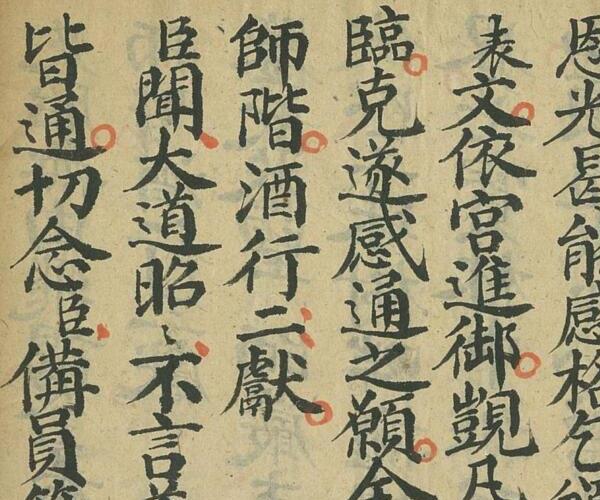 恩光曷能感格乞
表文依宮進御覬凡
臨克遂感通之願金
師階酒行二獻
臣聞大道昭〻不言
皆通切念臣備員